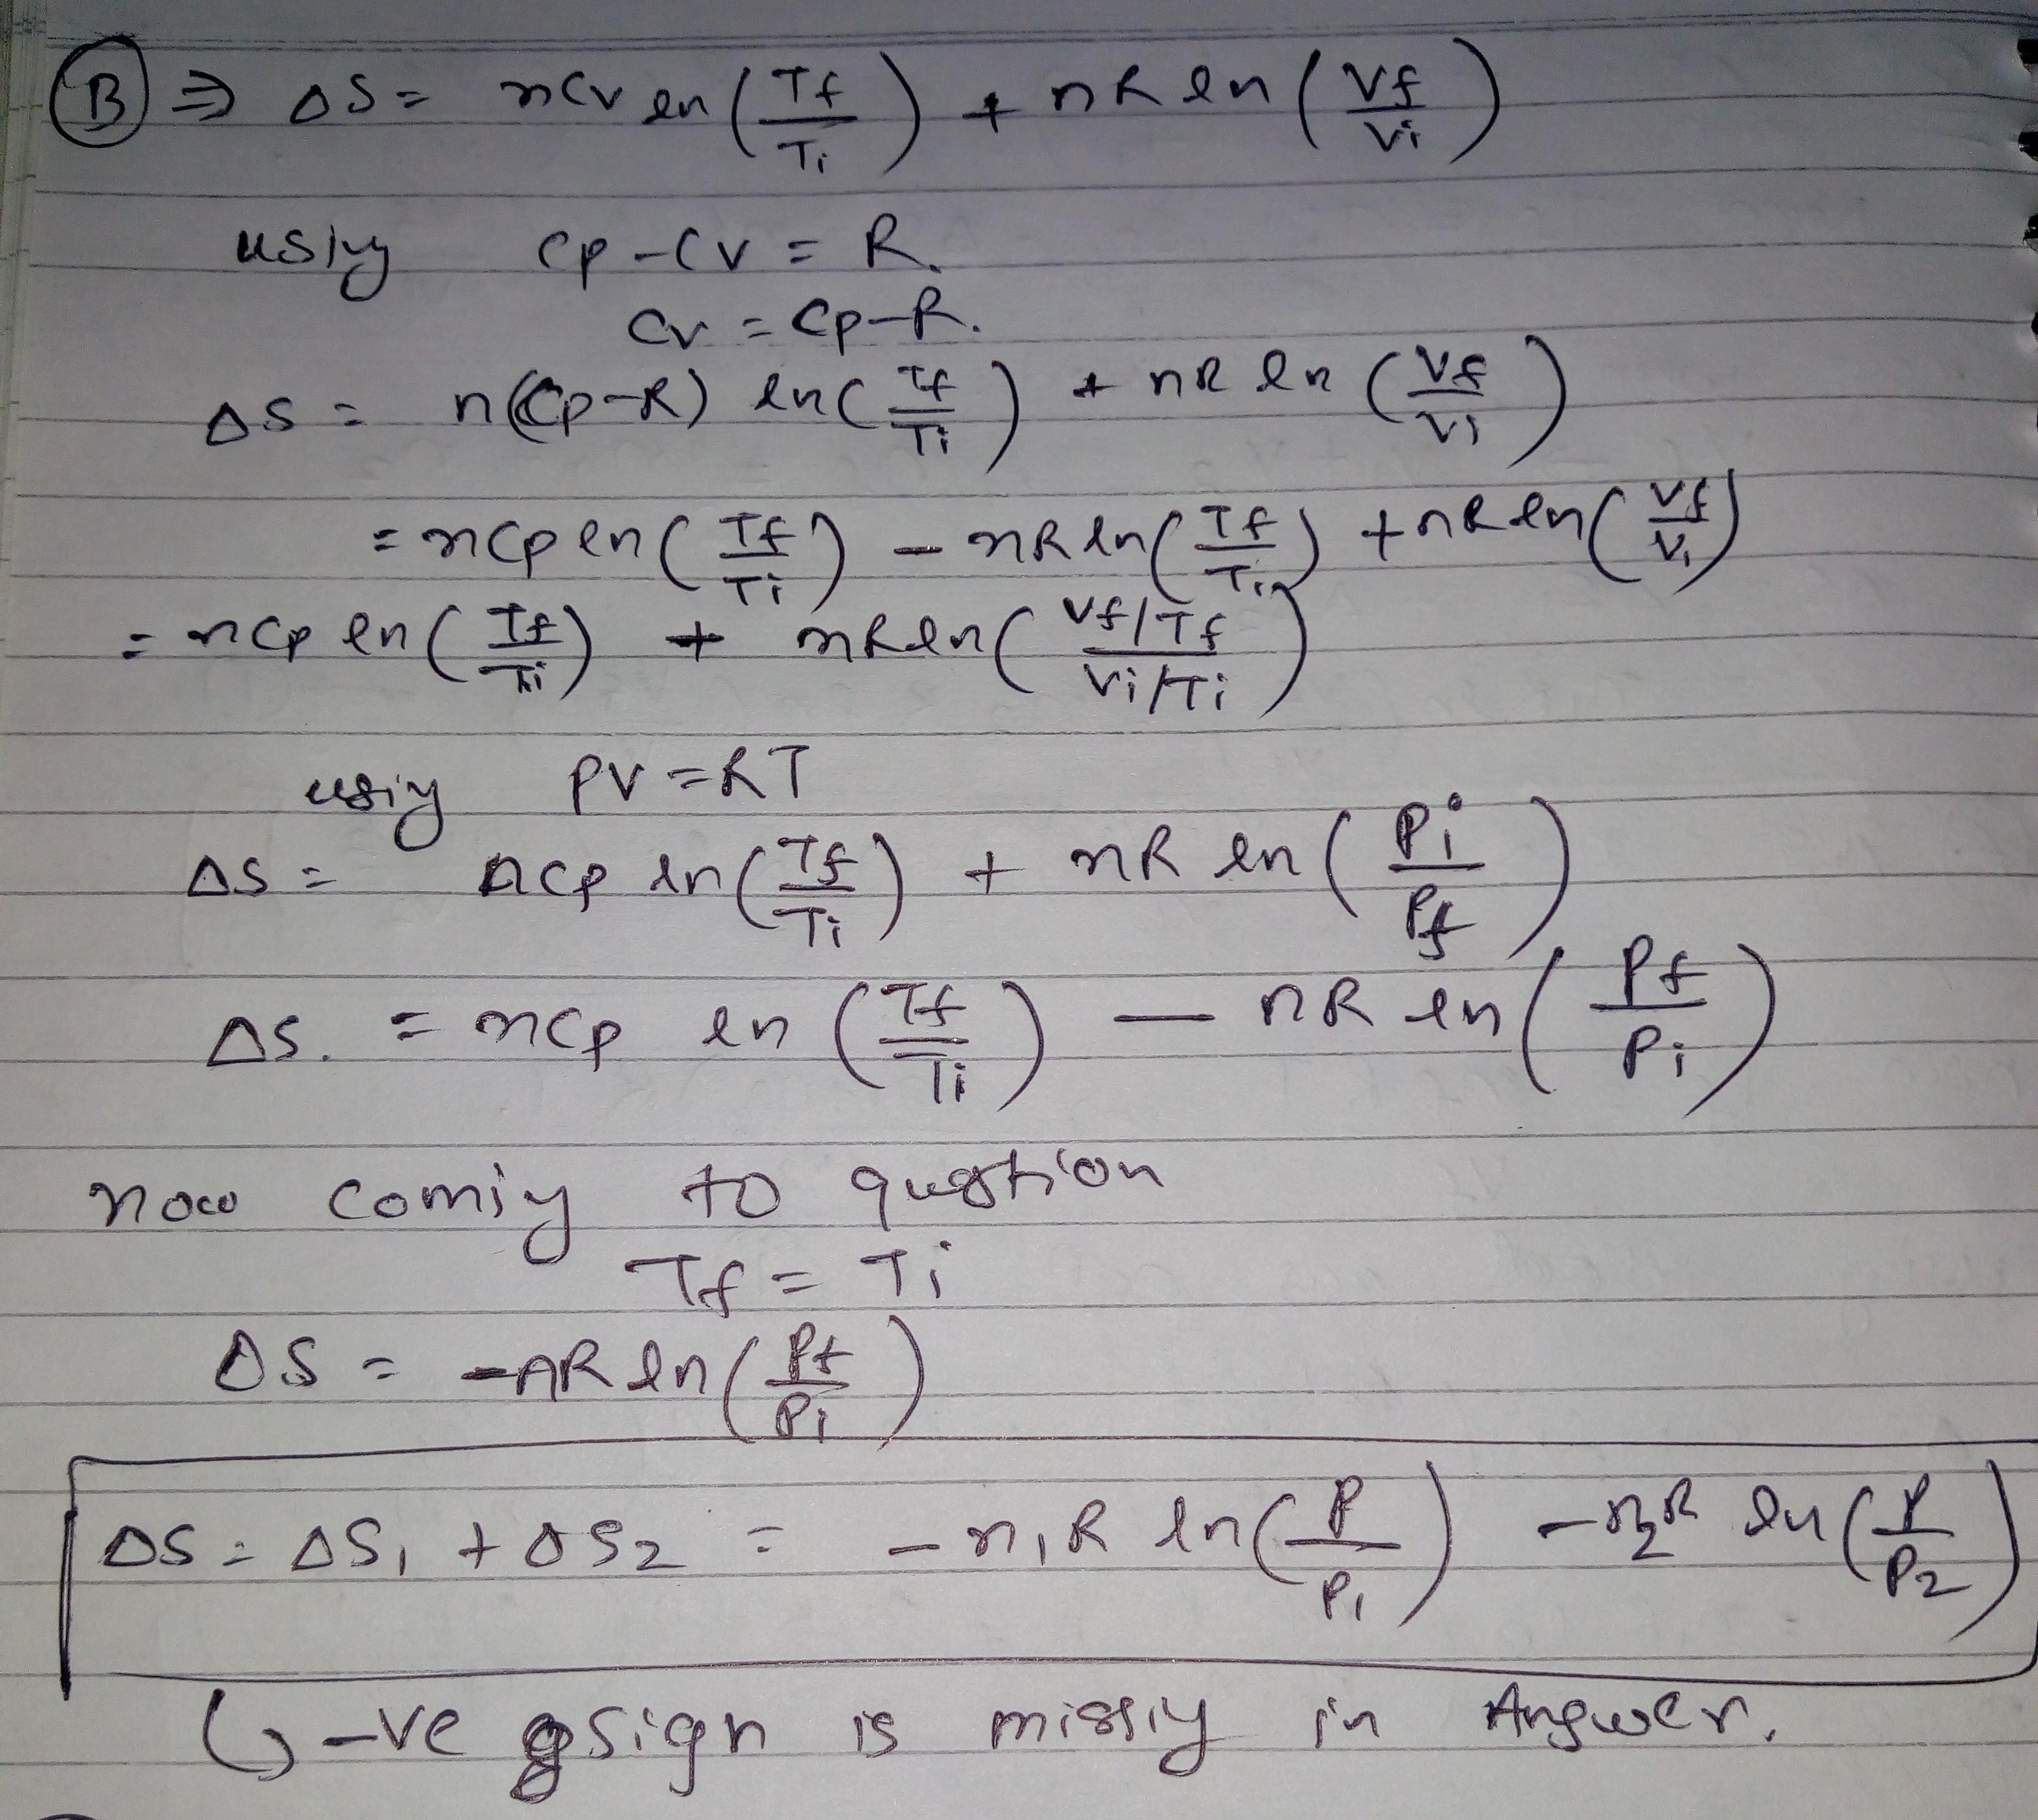 (B) ⇒ ΔS = nCv ln (Tf/Ti) + nR ln (Vf/Vi)
using Cp - Cv = R.
Cv = Cp - R.
ΔS = n(Cp-R) ln (Tf/Ti) + nR ln (Vf/Vi)
= nCp ln (Tf/Ti) - nR ln (Tf/Ti) + nR ln (Vf/Vi)
= nCp ln (Tf/Ti) + nR ln ((Vf/Tf)/(Vi/Ti))
using PV = RT
ΔS = nCp ln (Tf/Ti) + nR ln (Pi/Pf)
ΔS. = nCp ln (Tf/Ti) - nR ln (Pf/Pi)
now coming to question
Tf = Ti
ΔS = -nR ln (Pf/Pi)
ΔS = ΔS1 + ΔS2 = - n1R ln (P/P1) - n2R ln (P/P2)
↳ -ve sign is missing in Answer.